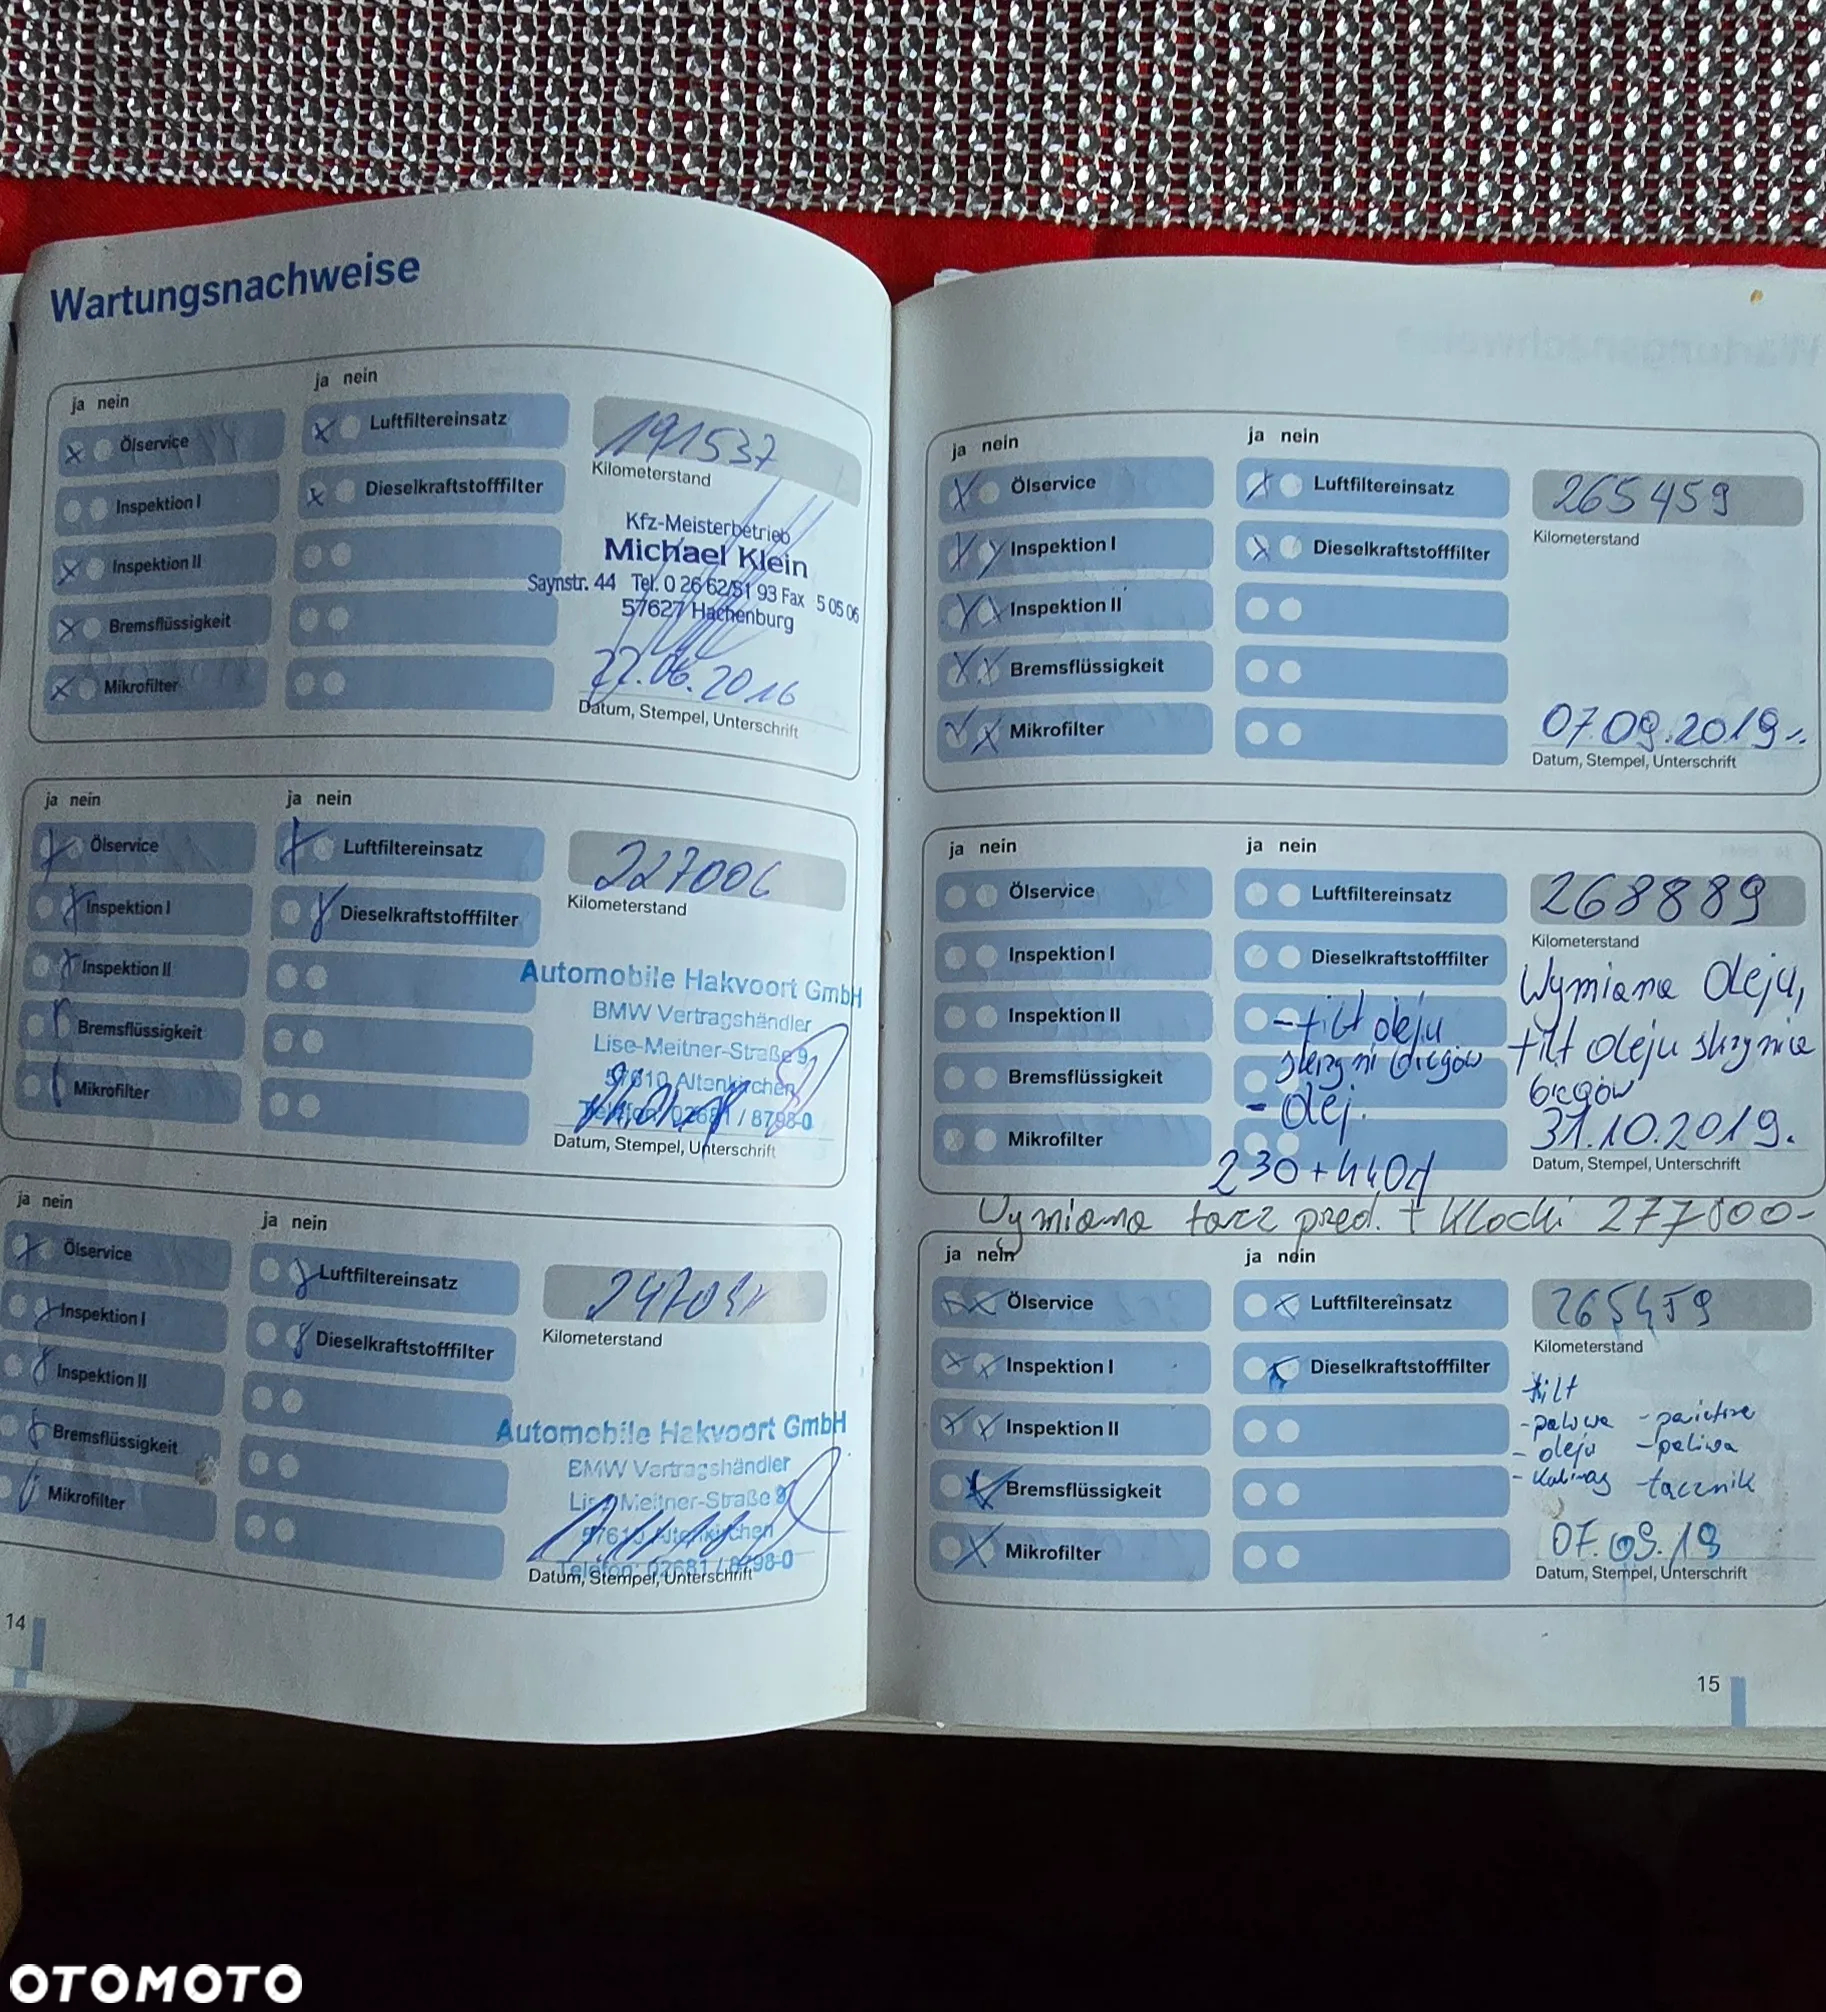 Wartungsnachweise
ja nein
ja nein
Ölservice
Luftfiltereinsatz
191537
Kilometerstand
Inspektion I
Dieselkraftstofffilter
Inspektion II
Bremsflüssigkeit
Mikrofilter
Kfz-Meisterbetrieb
Michael Klein
Saynstr. 44 Tel. 0 26 62/51 93 Fax 5 05 06
57627 Hachenburg
22.06.2016
Datum, Stempel, Unterschrift
ja nein
ja nein
Ölservice
Luftfiltereinsatz
227006
Kilometerstand
Inspektion I
Dieselkraftstofffilter
Inspektion II
Bremsflüssigkeit
Mikrofilter
Automobile Hakvoort GmbH
BMW Vertragshändler
Lise-Meitner-Straße 9
57610 Altenkirchen
Telefon: 02681 / 8798-0
Datum, Stempel, Unterschrift
ja nein
ja nein
Ölservice
Luftfiltereinsatz
Kilometerstand
Inspektion I
Dieselkraftstofffilter
Inspektion II
Bremsflüssigkeit
Mikrofilter
Automobile Hakvoort GmbH
BMW Vertragshändler
Lise-Meitner-Straße 9
57610 Altenkirchen
Telefon: 02681 / 8798-0
Datum, Stempel, Unterschrift
14
ja nein
ja nein
Ölservice
Luftfiltereinsatz
265459
Kilometerstand
Inspektion I
Dieselkraftstofffilter
Inspektion II
Bremsflüssigkeit
Mikrofilter
07.09.2019r.
Datum, Stempel, Unterschrift
ja nein
ja nein
Ölservice
Luftfiltereinsatz
268889
Kilometerstand
Inspektion I
Dieselkraftstofffilter
Inspektion II
Bremsflüssigkeit
Mikrofilter
- filt oleju
skrzyni biegów
- olej.
230 + 440
Wymiana oleju,
filt oleju skrzynie
biegów
31.10.2019.
Datum, Stempel, Unterschrift
Wymiana tarcz przed. + klocki 277800-
ja nein
ja nein
Ölservice
Luftfiltereinsatz
265459
Kilometerstand
Inspektion I
Dieselkraftstofffilter
Inspektion II
Bremsflüssigkeit
Mikrofilter
filt
- oleju - paliwa
07.09.19
Datum, Stempel, Unterschrift
15
OTOMOTO